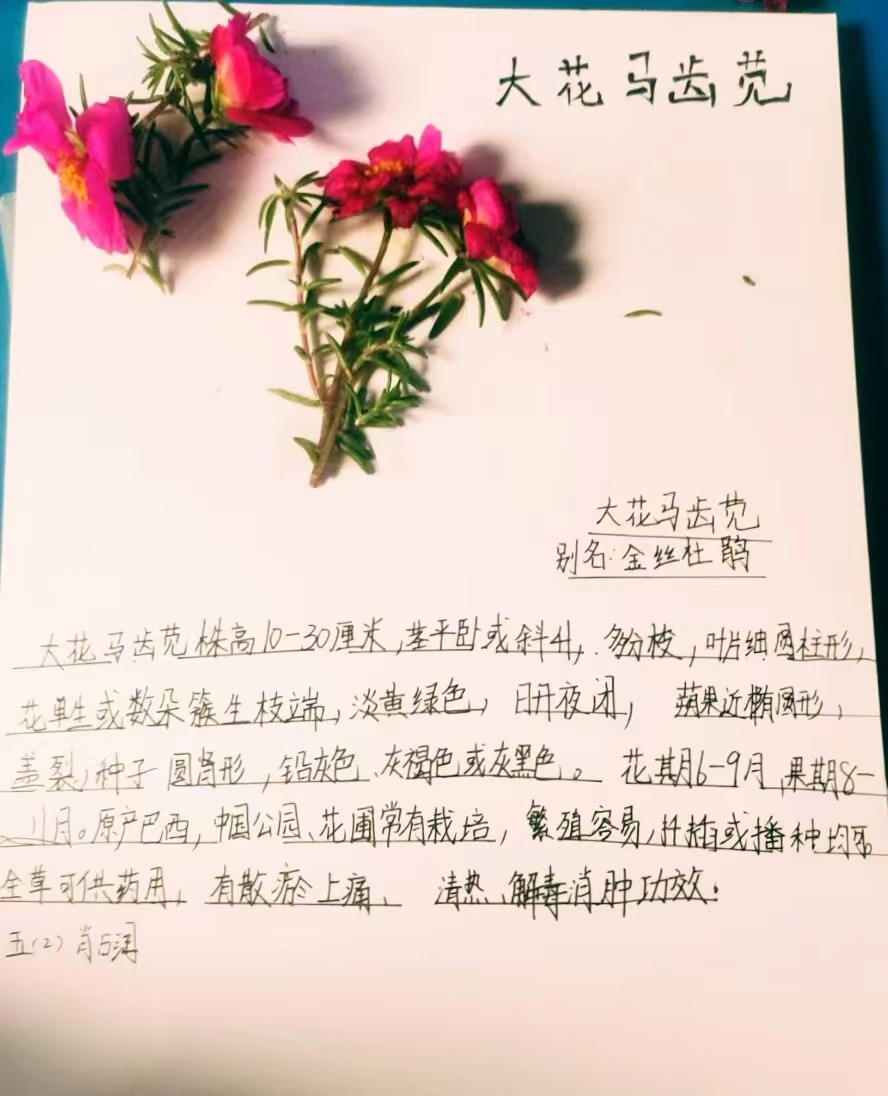 大花马齿苋
大花马齿苋
别名:金丝杜鹃
大花马齿苋株高10-30厘米,茎平卧或斜升,多分枝,叶片细圆柱形,
花单生或数朵簇生枝端,淡黄绿色,日开夜闭,蒴果近椭圆形,
盖裂,种子圆肾形,铅灰色、灰褐色或灰黑色。花期6-9月,果期8-
11月。原产巴西,中国公园、花圃常有栽培,繁殖容易,扦插或播种均可
全草可供药用,有散瘀止痛、清热、解毒消肿功效.
五(2)肖